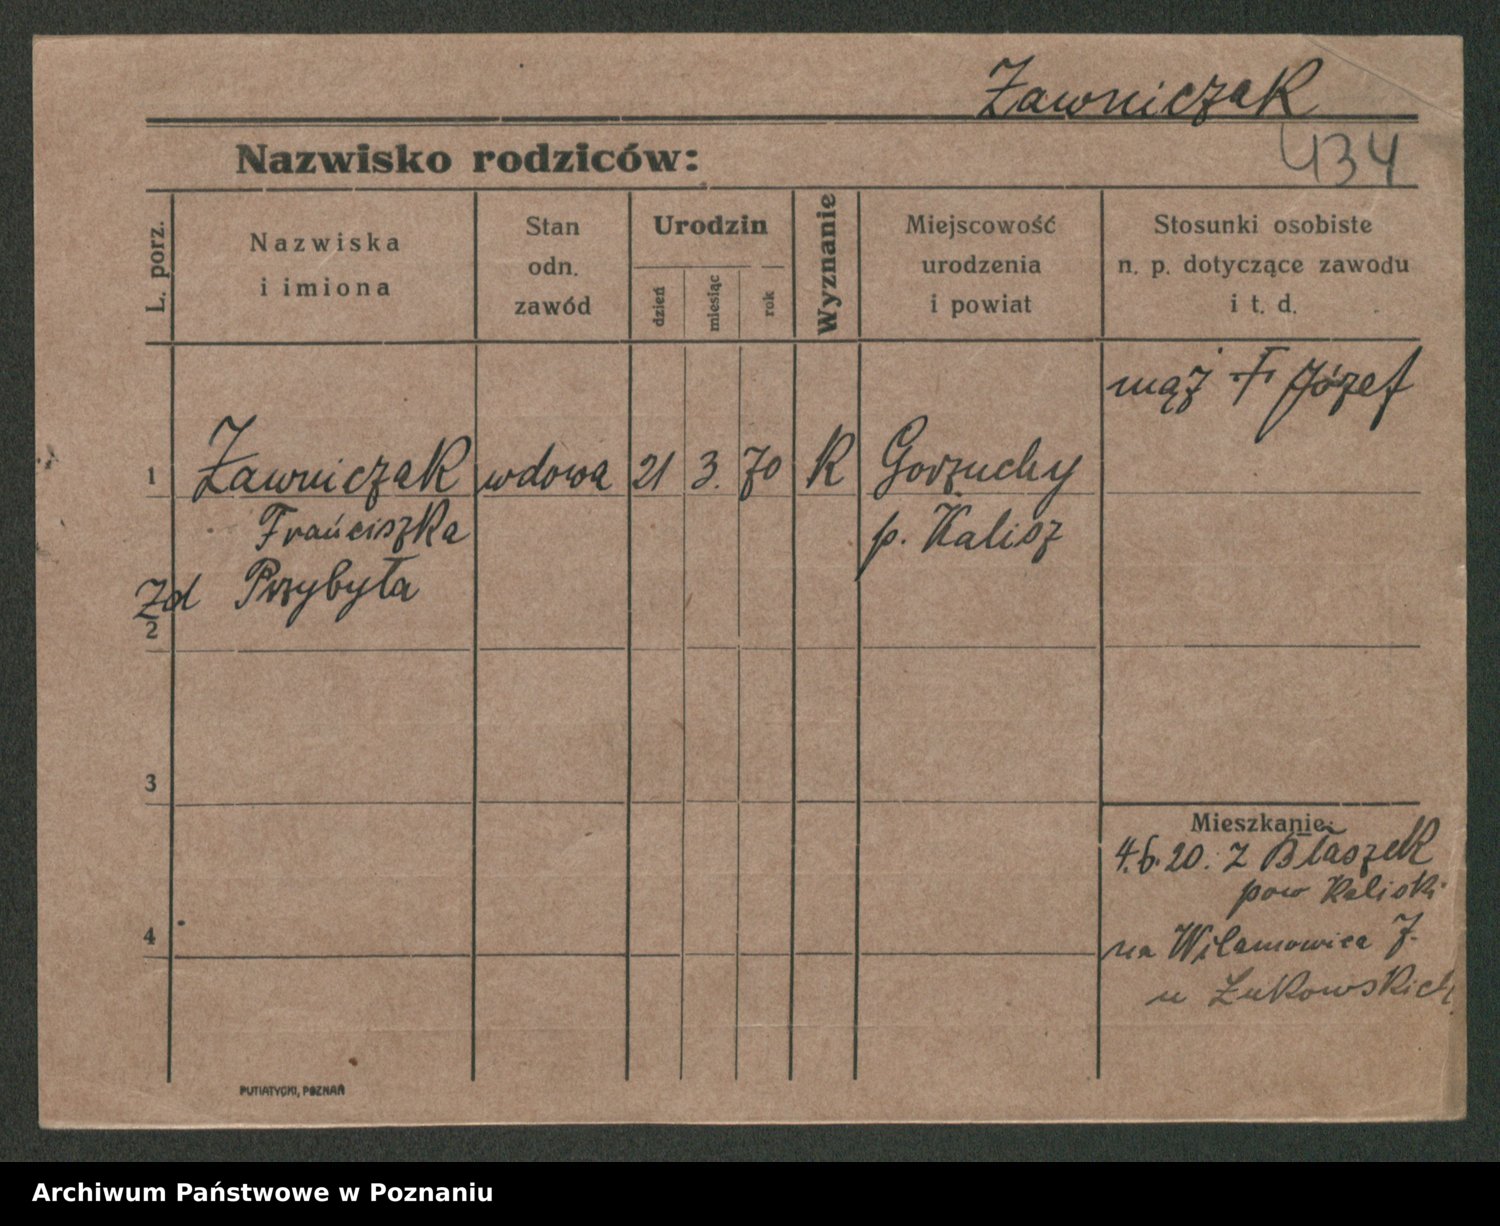 Zawniczak
Nazwisko rodziców:
434
L. porz.
Nazwiska
i imiona
Stan
odn.
zawód
Urodzin
dzień
miesiąc
rok
Wyznanie
Miejscowość
urodzenia
i powiat
Stosunki osobiste
n. p. dotyczące zawodu
i t. d.
mąż † Józef
1 Zawniczak wdowa 21 3. 70 K Gorzuchy
Franciszka p. Kalisz
Zd Przybyła
2
3
Mieszkanie:
4.6.20. z Błaszek
pow Kaliski
4
na Wilamowica 7.
u Łukowskich
PUTIATYCKI, POZNAŃ
Archiwum Państwowe w Poznaniu